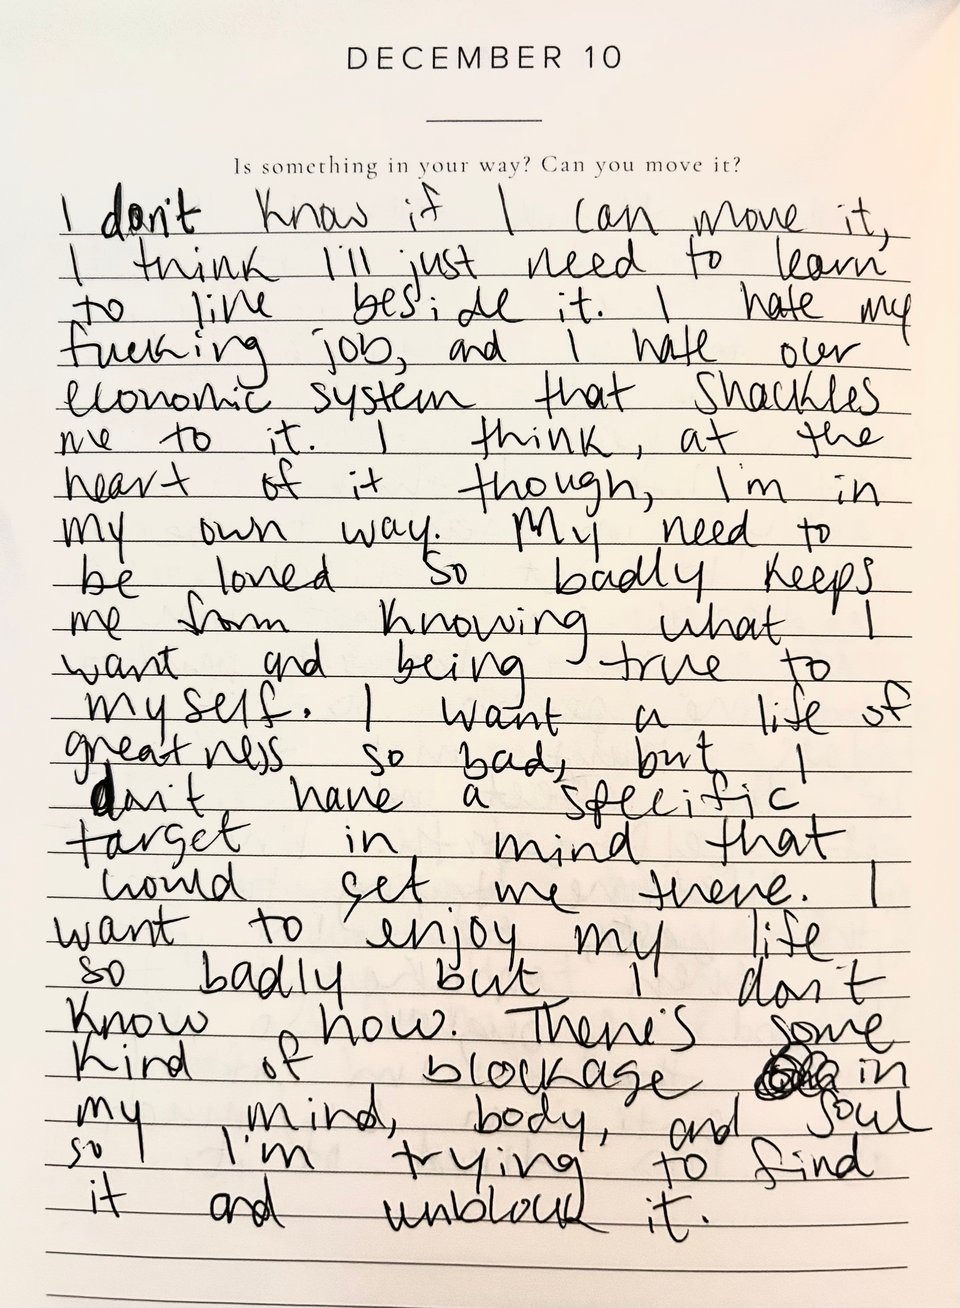 DECEMBER 10
Is something in your way? Can you move it?
I don't know if I can move it,
I think I'll just need to learn
to live beside it. I hate my
fucking job, and I hate our
economic system that shackles
me to it. I think, at the
heart of it though, I'm in
my own way. My need to
be loved so badly keeps
me from knowing what I
want and being true to
myself. I want a life of
greatness so bad, but I
don't have a specific
target in mind that
would get me there. I
want to enjoy my life
so badly but I don't
know how. There's some
kind of blockage in
my mind, body, and soul
so I'm trying to find
it and unblock it.